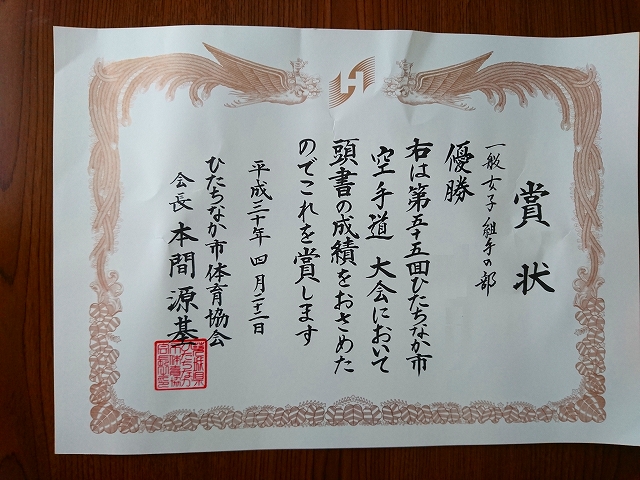 賞状
一般女子組手の部
優勝
右は第五十五回ひたちなか市
空手道 大会において
頭書の成績をおさめた
のでこれを賞します
平成三十年 四月二十二日
ひたちなか市体育協会
会長 本間源基